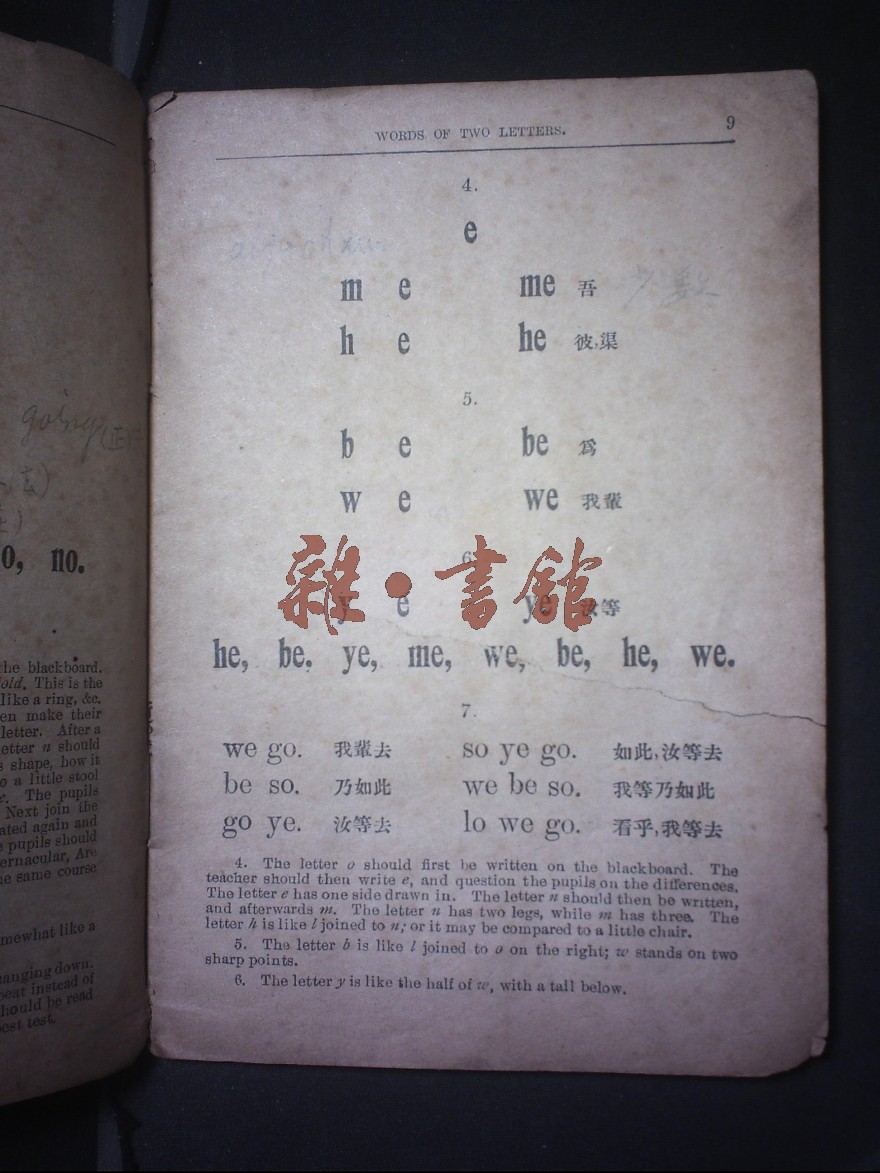 going (正)
o, no.
the blackboard.
old. This is the
like a ring, &c.
en make their
letter. After a
etter n should
s shape, how it
o a little stool
r. The pupils
Next join the
ated again and
e pupils should
ernacular, Are
he same course
mewhat like a
hanging down.
peat instead of
hould be read
best test.
WORDS OF TWO LETTERS. 9
4.
e
m e me 吾 少數
h e he 彼,渠
5.
b e be 爲
w e we 我輩
雜·書館
6.
y e ye 汝等
he, be. ye, me, we, be, he, we.
7.
we go. 我輩去 so ye go. 如此,汝等去
be so. 乃如此 we be so. 我等乃如此
go ye. 汝等去 lo we go. 看乎,我等去
4. The letter o should first be written on the blackboard. The
teacher should then write e, and question the pupils on the differences.
The letter e has one side drawn in. The letter n should then be written,
and afterwards m. The letter n has two legs, while m has three. The
letter h is like l joined to n; or it may be compared to a little chair.
5. The letter b is like l joined to o on the right; w stands on two
sharp points.
6. The letter y is like the half of w, with a tail below.